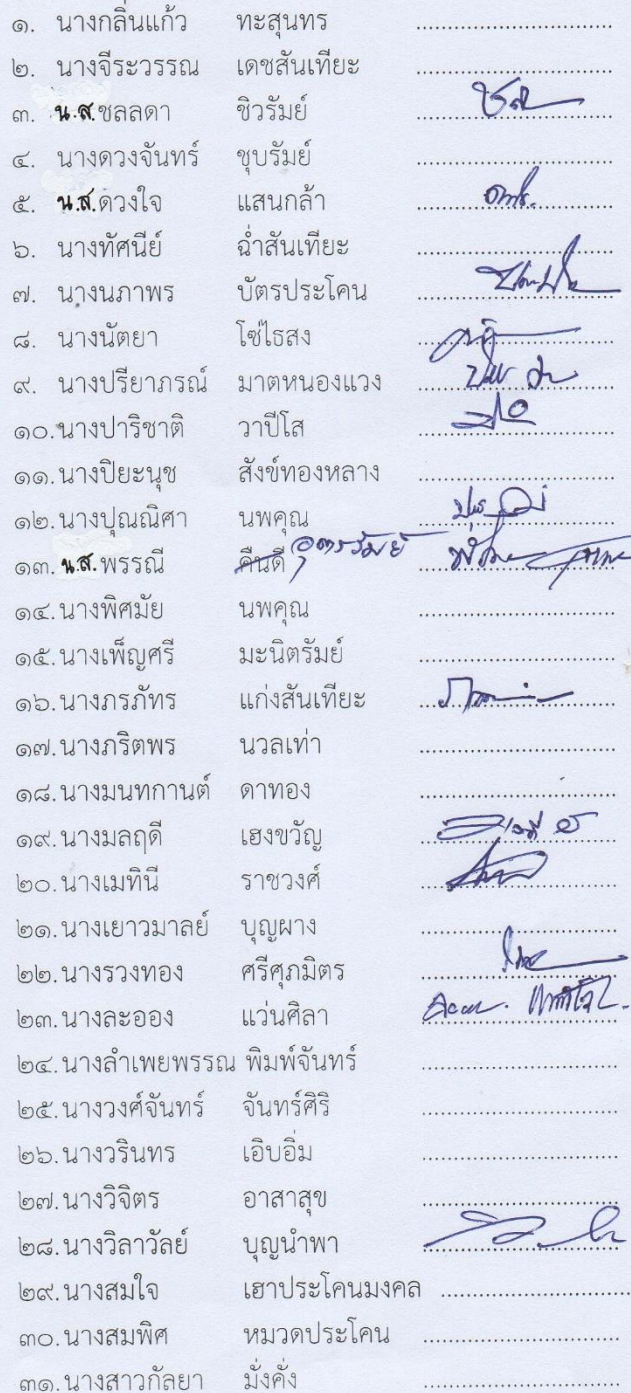 ๑. นางกลิ่นแก้ว ทะสุนทร ........................
๒. นางจีระวรรณ เดชสันเทียะ ........................
๓. น.ส.ชลลดา ชิวรัมย์ ........................
๔. นางดวงจันทร์ ชุบรัมย์ ........................
๕. น.ส.ดวงใจ แสนกล้า ........................
๖. นางทัศนีย์ ฉ่ำสันเทียะ ........................
๗. นางนภาพร บัตรประโคน ........................
๘. นางนัตยา โซ่ไธสง ........................
๙. นางปรียาภรณ์ มาตหนองแวง ........................
๑๐.นางปาริชาติ วาปีโส ........................
๑๑.นางปิยะนุช สังข์ทองหลาง ........................
๑๒.นางปุณณิศา นพคุณ ........................
๑๓. น.ส.พรรณี คืนดี อุตรรัมย์ ........................
๑๔.นางพิศมัย นพคุณ ........................
๑๕.นางเพ็ญศรี มะนิตรัมย์ ........................
๑๖.นางภรภัทร แก่งสันเทียะ ........................
๑๗.นางภริตพร นวลเท่า ........................
๑๘.นางมนทกานต์ ดาทอง ........................
๑๙.นางมลฤดี เฮงขวัญ ........................
๒๐.นางเมทินี ราชวงศ์ ........................
๒๑.นางเยาวมาลย์ บุญผาง ........................
๒๒.นางรวงทอง ศรีศุภมิตร ........................
๒๓.นางละออง แว่นศิลา ........................
๒๔.นางลำเพยพรรณ พิมพ์จันทร์ ........................
๒๕.นางวงศ์จันทร์ จันทร์ศิริ ........................
๒๖.นางวรินทร เอิบอิ่ม ........................
๒๗.นางวิจิตร อาสาสุข ........................
๒๘.นางวิลาวัลย์ บุญนำพา ........................
๒๙.นางสมใจ เฮาประโคนมงคล ........................
๓๐.นางสมพิศ หมวดประโคน ........................
๓๑.นางสาวกัลยา มั่งคั่ง ........................